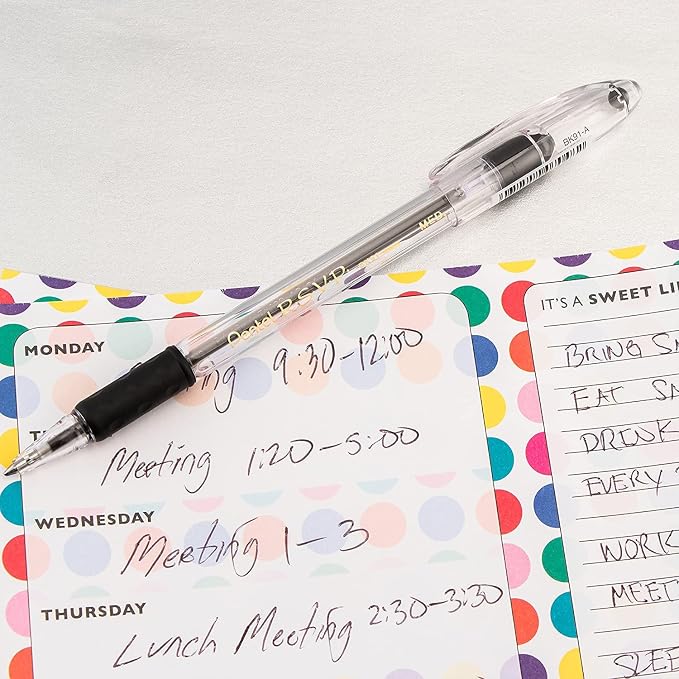 BK91-A
MED
Pentel R.S.V.P.
MONDAY
9:30-12:00
Meeting 1:20-5:00
WEDNESDAY
Meeting 1-3
THURSDAY
Lunch Meeting 2:30-3:30
IT'S A SWEET
BRING
EAT
DRINK
EVERY
WORK
MEET
SLEE